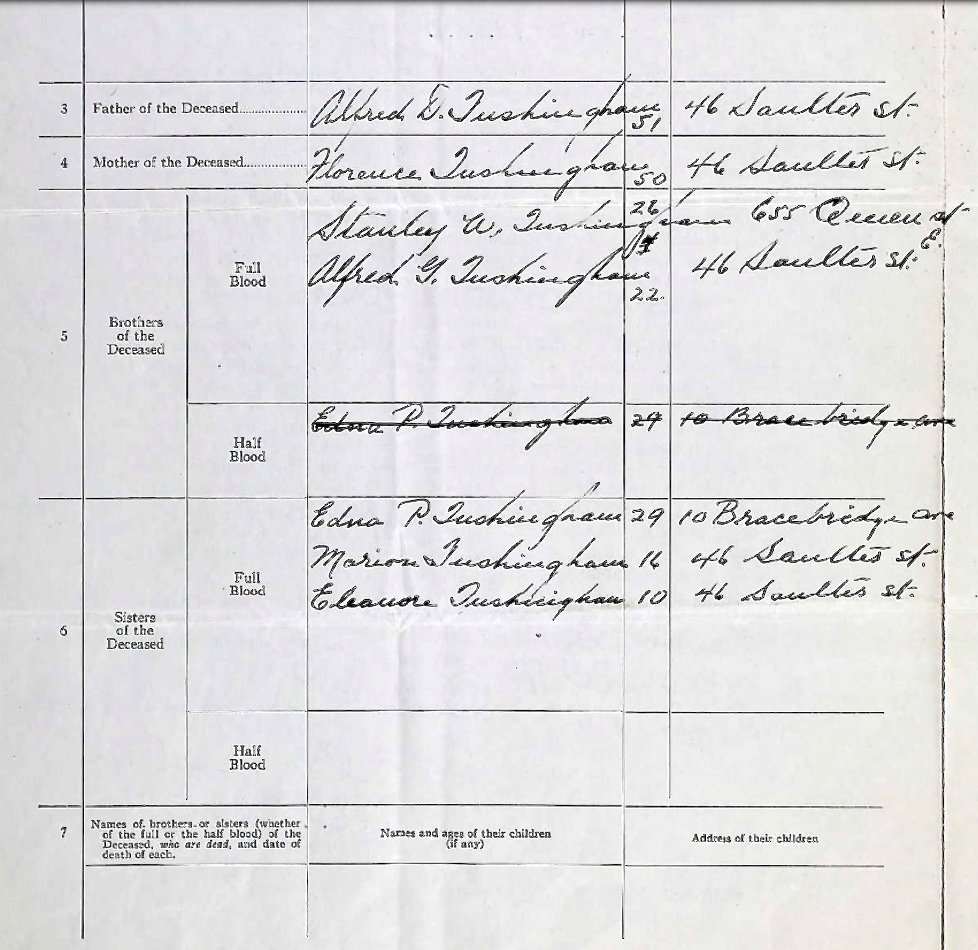 3 Father of the Deceased.................. Alfred D. Tushingham 51 46 Saulter st.
4 Mother of the Deceased................ Florence Tushingham 50 46 Saulter st.
5 Brothers of the Deceased
Full Blood
Stanley W. Tushingham 26 655 Queen st E.
Alfred G. Tushingham 22. 46 Saulter st.
Half Blood
Edna P. Tushingham 29 10 Bracebridge ave
6 Sisters of the Deceased
Full Blood
Edna P. Tushingham 29 10 Bracebridge ave
Marion Tushingham 16 46 Saulter st.
Eleanore Tushingham 10 46 Saulter st.
Half Blood
7 Names of brothers or sisters (whether
of the full or the half blood) of the
Deceased, who are dead, and date of
death of each.
Names and ages of their children
(if any)
Address of their children